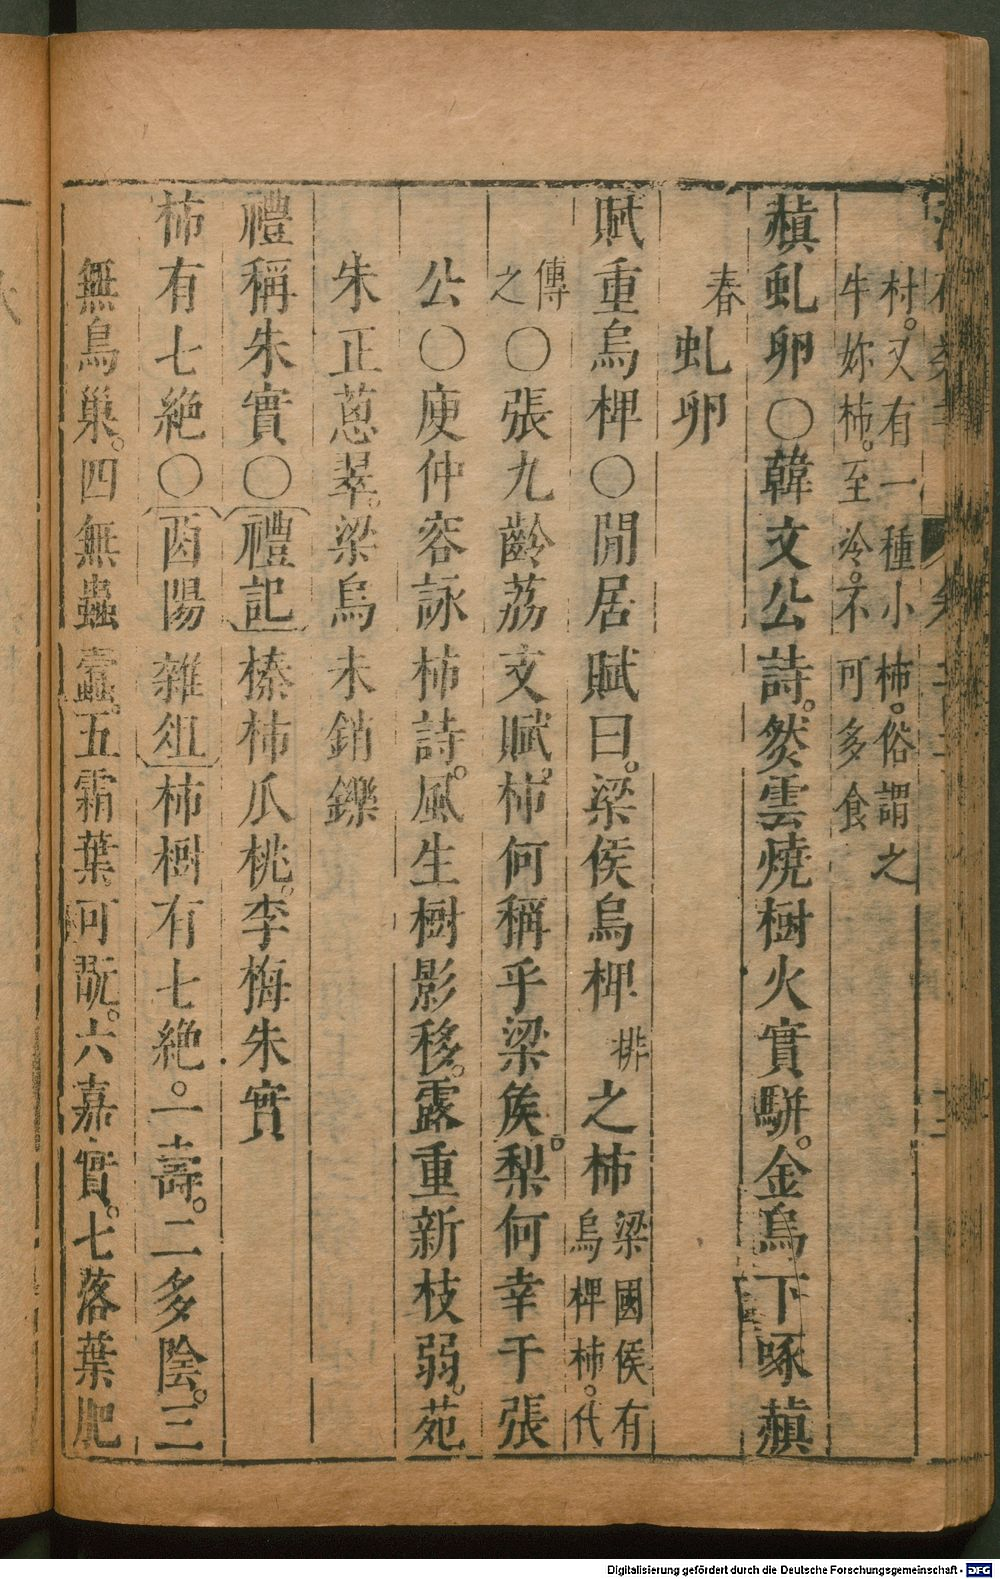 村。又有一種小柿。俗謂之
牛妳柿。至冷。不可多食
赬虬卵〇韓文公詩。然雲燒樹火實駢。金烏下啄赬
虬卵
春
賦重烏椑〇閒居賦曰。梁侯烏椑
排
之柿
梁國侯有
烏椑柿。代
傳
之
〇張九齡荔支賦。柿何稱乎梁侯。梨何幸于張
公〇庾仲容詠柿詩。風生樹影移。露重新枝弱。苑
朱正蔥翠。梁烏未銷鑠
禮稱朱實〇禮記榛柿瓜桃。李梅朱實
柿有七絶〇酉陽雜俎柿樹有七絶。一壽。二多陰。三
無鳥巢。四無蟲蠧。五霜葉可翫。六嘉實。七落葉肥
Digitalisierung gefördert durch die Deutsche Forschungsgemeinschaft - DFG